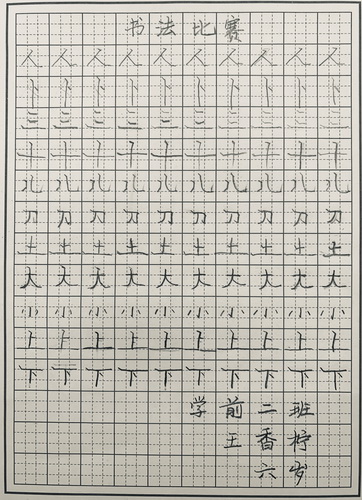 书法比赛
人人人人人人人人人人
卜卜卜卜卜卜卜卜卜卜
十十十十十十十十十十
儿儿儿儿儿儿儿儿儿儿
刀刀刀刀刀刀刀刀刀刀
土土土土土土土土土土
大大大大大大大大大大
小小小小小小小小小小
上上上上上上上上上上
下下下下下下下下下下
学前二班
王香柠
六岁